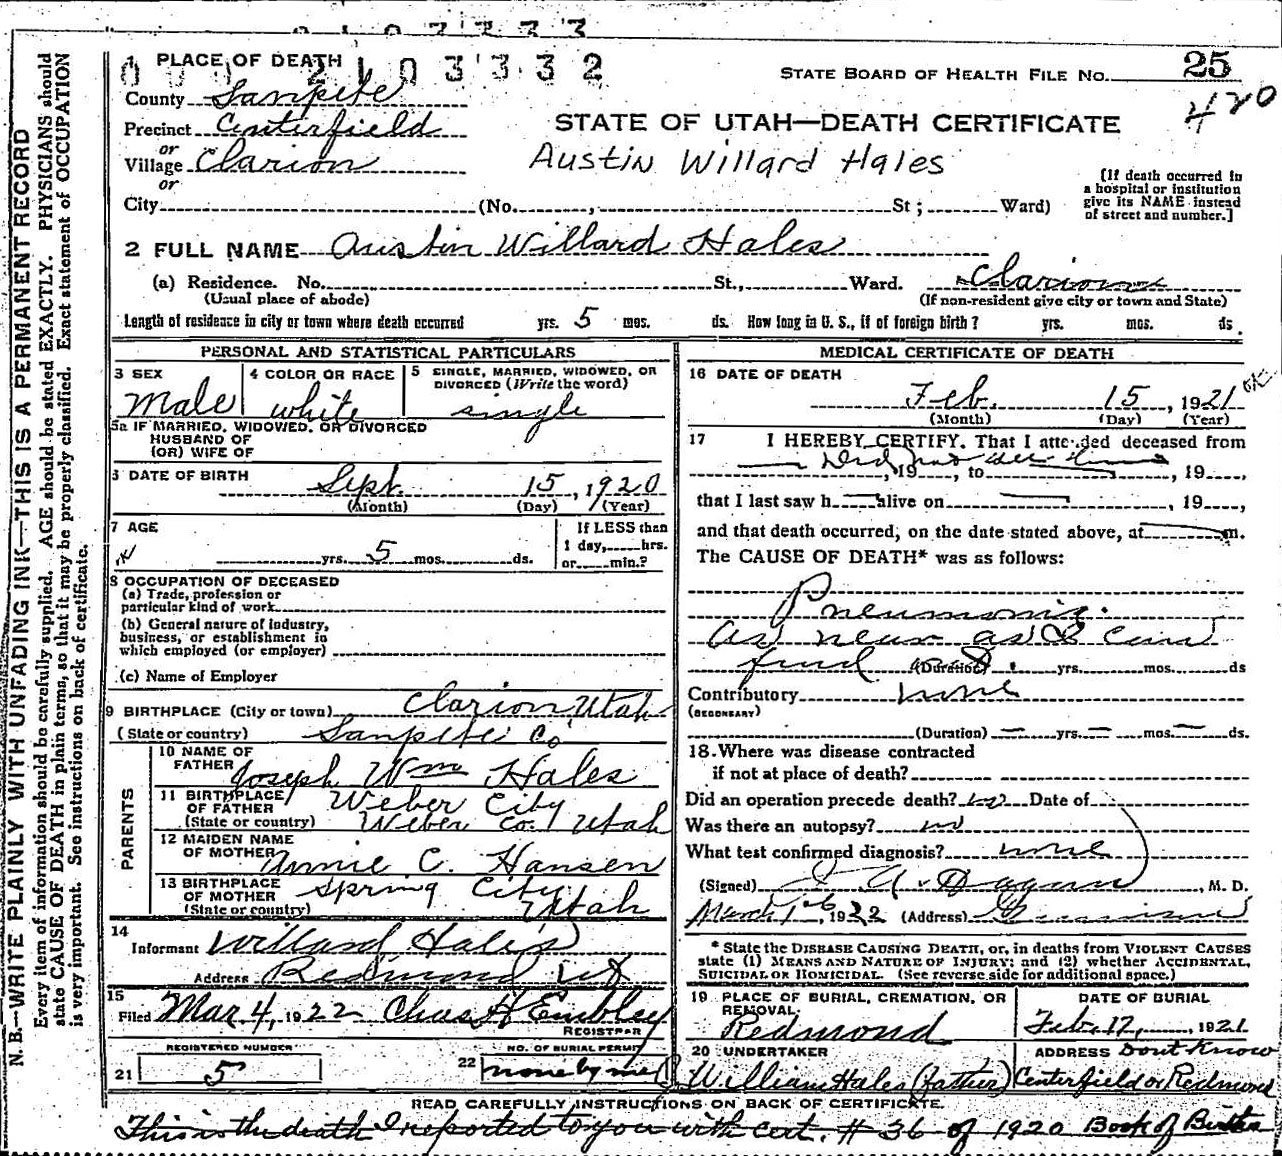 2103332
PLACE OF DEATH
STATE BOARD OF HEALTH FILE NO. 25
420
County Sanpete
Precinct Centerfield
or
Village Clarion
or
City (No. , St; Ward)
STATE OF UTAH—DEATH CERTIFICATE
Austin Willard Hales
[If death occurred in
a hospital or institution
give its NAME instead
of street and number.]
2 FULL NAME Austin Willard Hales
(a) Residence. No. St., Ward. Clarion
(Usual place of abode) (If non-resident give city or town and State)
Length of residence in city or town where death occurred yrs. 5 mos. ds. How long in U. S., if of foreign birth? yrs. mos. ds.
PERSONAL AND STATISTICAL PARTICULARS
3 SEX
Male
4 COLOR OR RACE
white
5 SINGLE, MARRIED, WIDOWED, OR
DIVORCED (Write the word)
single
5a IF MARRIED, WIDOWED, OR DIVORCED
HUSBAND OF
(OR) WIFE OF
6 DATE OF BIRTH
Sept. 15, 1920
(Month) (Day) (Year)
7 AGE
yrs. 5 mos. ds.
If LESS than
1 day, hrs.
or min.?
8 OCCUPATION OF DECEASED
(a) Trade, profession or
particular kind of work
(b) General nature of industry,
business, or establishment in
which employed (or employer)
(c) Name of Employer
9 BIRTHPLACE (City or town) Clarion Utah
(State or country) Sanpete Co
PARENTS
10 NAME OF
FATHER Joseph Wm Hales
11 BIRTHPLACE
OF FATHER Weber City
(State or country) Weber Co. Utah
12 MAIDEN NAME
OF MOTHER Annie C. Hansen
13 BIRTHPLACE
OF MOTHER Spring City
(State or country) Utah
14
Informant Willard Hales
Address Redmond Ut
15
Filed Mar 4, 1922 Chas H Embley
REGISTRAR
REGISTERED NUMBER
21 5
NO. OF BURIAL PERMIT
22 none by me
MEDICAL CERTIFICATE OF DEATH
16 DATE OF DEATH
Feb. 15, 1921 OK
(Month) (Day) (Year)
17 I HEREBY CERTIFY, That I attended deceased from
Did not see him, 19, to , 19
that I last saw h alive on , 19,
and that death occurred, on the date stated above, at m.
The CAUSE OF DEATH* was as follows:
Pneumonia.
As near as I can
find out. (Duration) yrs. mos. ds
Contributory none
(SECONDARY)
(Duration) yrs. mos. ds.
18. Where was disease contracted
if not at place of death?
Did an operation precede death? no Date of
Was there an autopsy? no
What test confirmed diagnosis? none
(Signed) , M. D.
March 1st, 1922 (Address) Gunnison
* State the DISEASE CAUSING DEATH, or, in deaths from VIOLENT CAUSES
state (1) MEANS AND NATURE OF INJURY; and (2) whether ACCIDENTAL,
SUICIDAL OR HOMICIDAL. (See reverse side for additional space.)
19 PLACE OF BURIAL, CREMATION, OR
REMOVAL
Redmond
DATE OF BURIAL
Feb. 17, 1921
20 UNDERTAKER
William Hales (father)
ADDRESS Dont Know
Centerfield or Redmond
READ CAREFULLY INSTRUCTIONS ON BACK OF CERTIFICATE.
This is the death I reported to you with cert. # 36 of 1920 Book of Births
N. B.—WRITE PLAINLY WITH UNFADING INK—THIS IS A PERMANENT RECORD
Every item of information should be carefully supplied. AGE should be stated EXACTLY. PHYSICIANS should
state CAUSE OF DEATH in plain terms, so that it may be properly classified. Exact statement of OCCUPATION
is very important. See instructions on back of certificate.